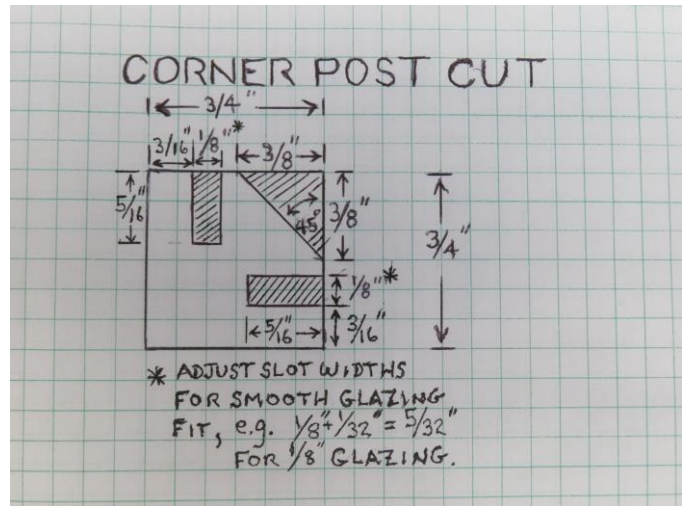 CORNER POST CUT
3/4"
3/16" 1/8"* 3/8"
5/16" 45° 3/8" 3/4"
1/8"*
5/16" 3/16"
* ADJUST SLOT WIDTHS
FOR SMOOTH GLAZING
FIT, e.g. 1/8"+1/32" = 5/32"
FOR 1/8" GLAZING.